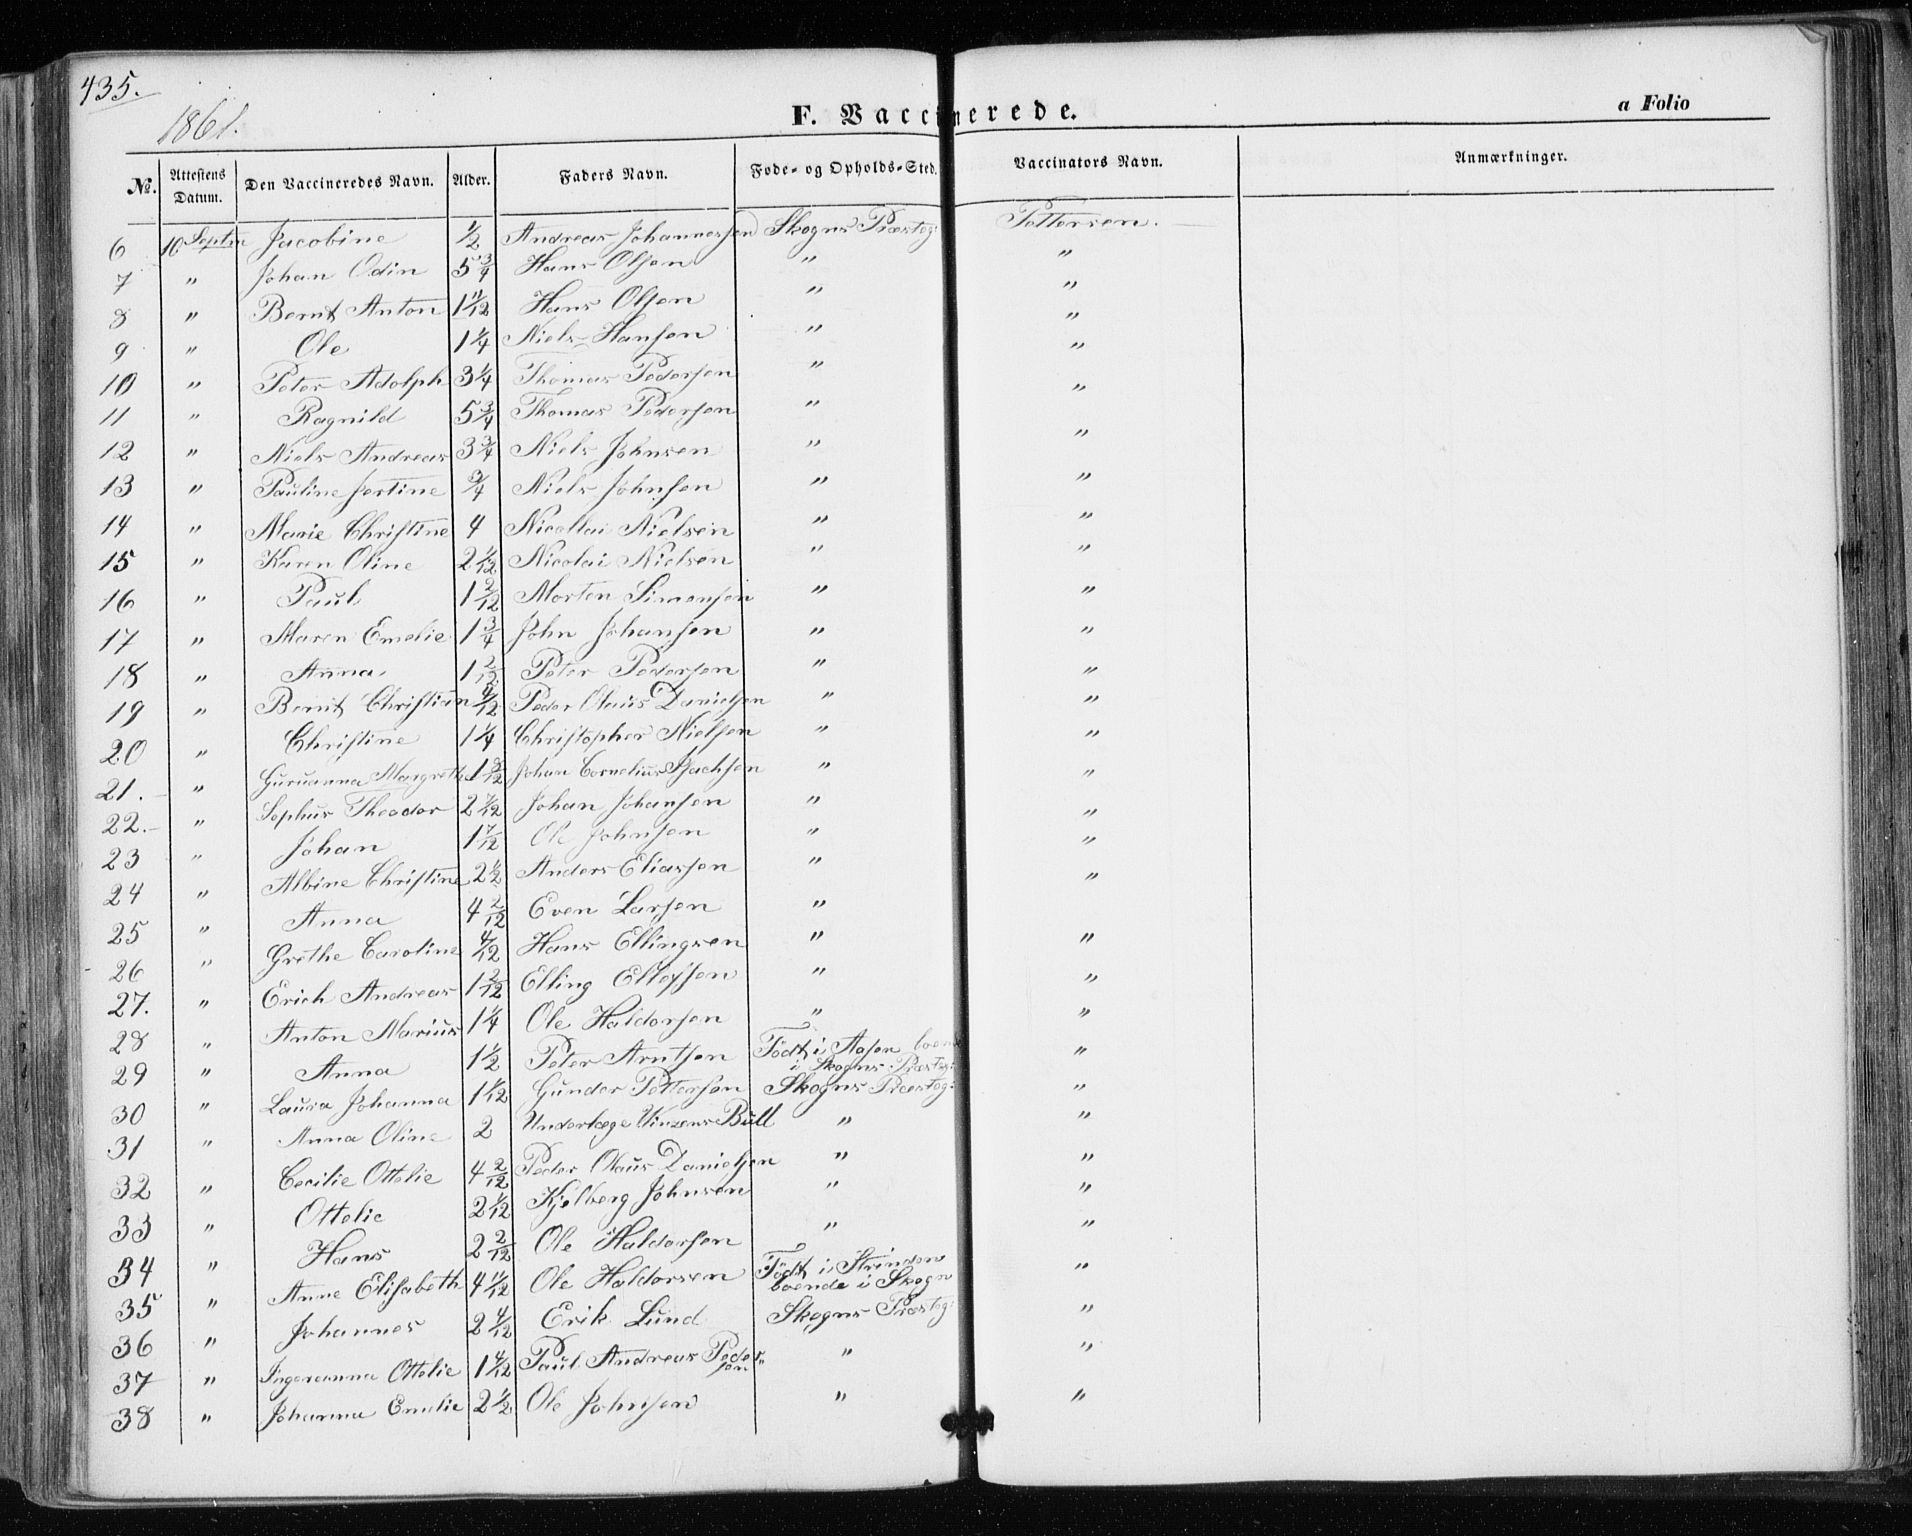 435.
1861.
F. Vaccinerede.
a Folio
No. Attestens Datum. Den Vaccineredes Navn. Alder. Faders Navn. Føde- og Opholds-Sted. Vaccinators Navn. Anmærkninger.
6 10 Septbr Jacobine 1/2 Andreas Johannessen Skogns Præsteg: Pettersen.
7 " Johan Odin 5 3/4 Hans Olsen " "
8 " Bernt Anton 1 11/12 Hans Olsen " "
9 " Ole 1 1/4 Niels Hansen " "
10 " Peter Adolph 3 1/4 Thomas Pedersen " "
11 " Ragnild 5 3/4 Thomas Pedersen " "
12 " Niels Andreas 3 3/4 Niels Johnsen " "
13 " Pauline Jertine 3/4 Niels Johnsen " "
14 " Marie Christine 4 Nicollai Nielsen " "
15 " Karen Oline 2 1/12 Nicolai Nielsen " "
16 " Paul 1 2/12 Morten Simonsen " "
17 " Maren Emelie 1 3/4 John Johansen " "
18 " Anna 1 2/12 Peter Pedersen " "
19 " Bernt Christian 9/12 Peder Olaus Danielsen " "
20 " Christine 1 1/4 Christopher Nielsen " "
21. " Guruanna Margrethe 1 8/12 Johan Cornelius Isachsen " "
22. " Sophus Theodor 2 7/12 Johan Johansen " "
23 " Johan 1 7/12 Ole Johnsen " "
24 " Albine Christine 2 1/2 Anders Eliassen " "
25 " Anna 4 2/12 Even Larsen "
26 " Grethe Caroline 4/12 Hans Ellingsen " "
27. " Erich Andreas 1 2/12 Elling Ellefsen " "
28 " Anton Marius 1 1/4 Ole Haldorsen " "
29 " Anna 1 1/2 Peter Arntsen Født i Aasen boende i Skogns Præsteg: "
30 " Laura Johanna 1 1/12 Gunder Pettersen Skogns Præsteg: "
31 " Anna Oline 2 Underlæge Vinzens Bull " "
32 " Cecilie Ottelie 4 2/12 Peder Olaus Danielsen " "
33 " Ottelie 2 1/12 Kjelberg Johnsen " "
34 " Hans 2 2/12 Ole Haldorsen " "
35 " Anne Elisabeth 4 11/12 Ole Haldorsen Født i Strinden boende i Skogn "
36 " Johannes 2 4/12 Erik Lund Skogns Præsteg: "
37 " Ingereanna Ottelie 1 4/12 Paul Andreas Pedersen " "
38 " Johanna Emelie 2 1/2 Ole Johnsen " "